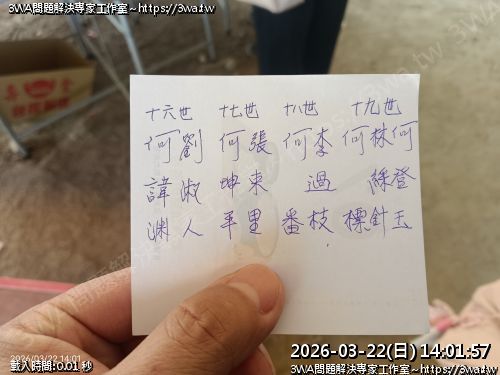 3WA問題解決專家工作室~https://3wa.tw
十六世 十七世 十八世 十九世
何劉 何張 何李 何林何
諱淑 坤東 過 綠登
渊人 平里 番枝 標針玉
2026/03/22 14:01
載入時間:0.01 秒
2026-03-22(日) 14:01:57
3WA問題解決專家工作室~https://3wa.tw